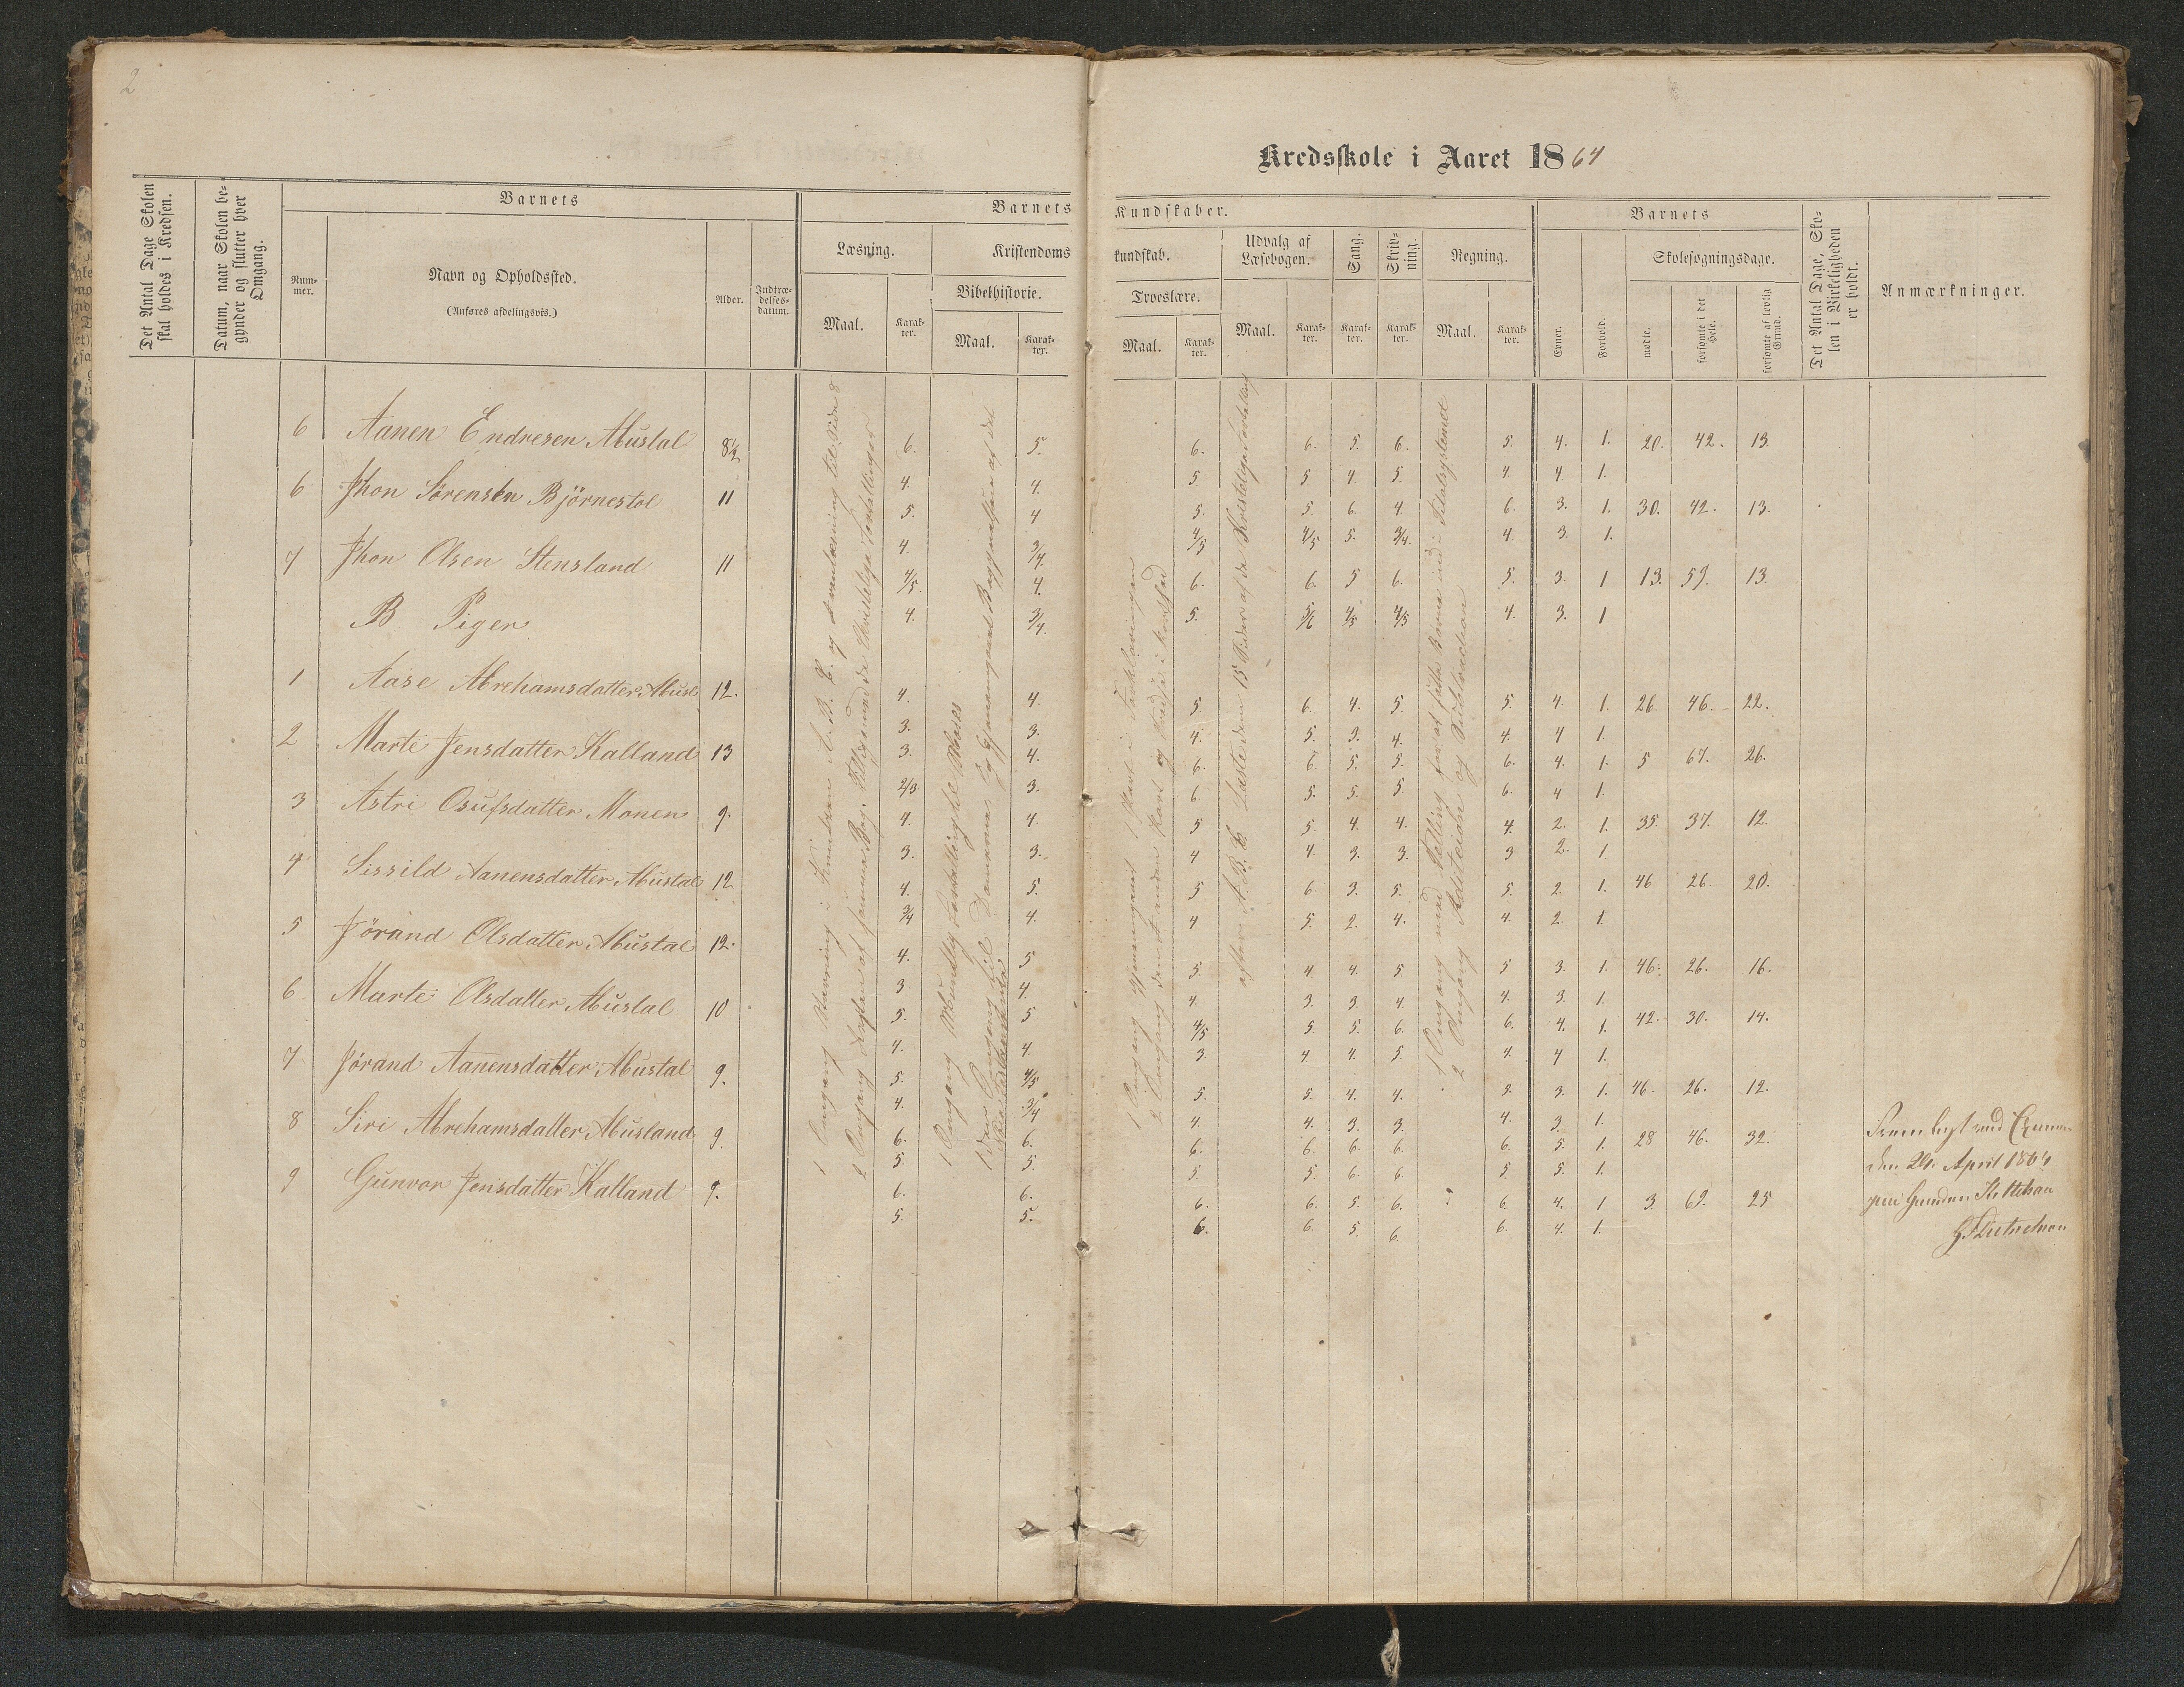 2
Kredsskole i Aaret 1864
Det Antal Dage Skolen skal holdes i Kredsen.
Datum, naar Skolen begynder og slutter hver Omgang.
Barnets
Nummer.
Navn og Opholdssted.
(Anføres afdelingsvis.)
Alder.
Indtrædelsesdatum.
Barnets Kundskaber.
Læsning.
Maal.
Karakter.
Kristendomskundskab.
Bibelhistorie.
Maal.
Karakter.
Troeslære.
Maal.
Karakter.
Udvalg af Læsebogen.
Maal.
Karakter.
Sang.
Karakter.
Skrivning.
Karakter.
Regning.
Maal.
Karakter.
Barnets
Evner.
Forhold.
Skolesøgningsdage.
mødte.
forsømte i det Hele.
forsømte af lovlig Grund.
Det Antal Dage, Skolen i Virkeligheden er holdt.
Anmærkninger.
6 Aanen Endresen Abustal 8½ 6. 5. 6. 6. 5. 6. 5. 4. 1. 20. 42. 13
4. 4. 5 5 4 5. 4. 4 1.
6 Jhon Sörensen Björnestöl 11 5. 4 5. 5. 6. 4. 6. 3. 1. 30. 42. 13.
4. 3/4. 4/5 4/5 5. 3/4. 4. 3. 1.
7 Jhon Olsen Stensland 11 4/5. 4. 6. 6. 5 6. 5. 3. 1 13. 59. 13.
4. 3/4. 5. 5/6 4/5 4/5 4. 3. 1
B Piger
1 Aase Abrehamsdatter Abusl 12. 4. 4. 5. 6. 4. 5. 5. 4. 1. 26. 46. 22.
3. 3. 4. 5. 3. 4. 4. 4 1.
2 Marte Jensdatter Kalland 13 3. 4. 6. 6. 5. 5. 6. 4. 1. 5 67. 26.
2/3. 3. 6. 5. 5. 5. 6. 4 1.
3 Astri Osufsdatter Monen 9. 4. 4. 5 5. 4. 4. 4. 2. 1. 35. 37. 12.
3. 3. 4 4. 3. 3. 3 2. 1
4 Sissild Aanensdatter Abustal 12 4. 5. 5 6. 3. 5. 5. 2. 1. 46 26. 20.
3/4 4. 4 5. 2. 4. 4. 2. 1.
5 Jörand Olsdatter Abustal 12. 4. 5 5. 4. 4. 5 5 3. 1. 46. 26. 16.
3. 4. 4. 3. 3. 4. 4. 3. 1.
6 Marte Olsdatter Abustal 10 5. 5 4/5 5. 5. 6. 6. 4. 1. 42. 30. 14.
4. 4. 3. 4 4. 5. 4. 4 1.
7 Jörand Aanensdatter Abustal 9. 5. 4/5 5. 5. 4. 4. 5. 3. 1. 46. 26. 12.
4. 3/4 4. 4. 3. 3. 4. 3. 1.
8 Siri Abrehamsdatter Abusland 9. 6. 6. 6. 6. 6. 6. 6. 5. 1. 28 46. 32.
5. 5. 5. 5. 6. 6. 5. 5. 1.
9 Gunvor Jensdatter Kalland 9. 6. 6. 6. 6. 5. 6. 6. 4. 1 3. 69. 25
5. 5. 6. 6. 5. 6. 6. 4. 1.
1 Omgang Stavning i A. B. C. og
2 Omgang af samme Bog.
1 Omgang
1 Omgang gjennemgaaet 1 Part i Forklaringen
2 Omgang den anden Part og
efter A. B. C. Læste dem 15 Sider af de
1 Omgang med Telling
2 Omgang Additeidn og Subtraction
Fremlagt ved Examen
den 21. April 1864